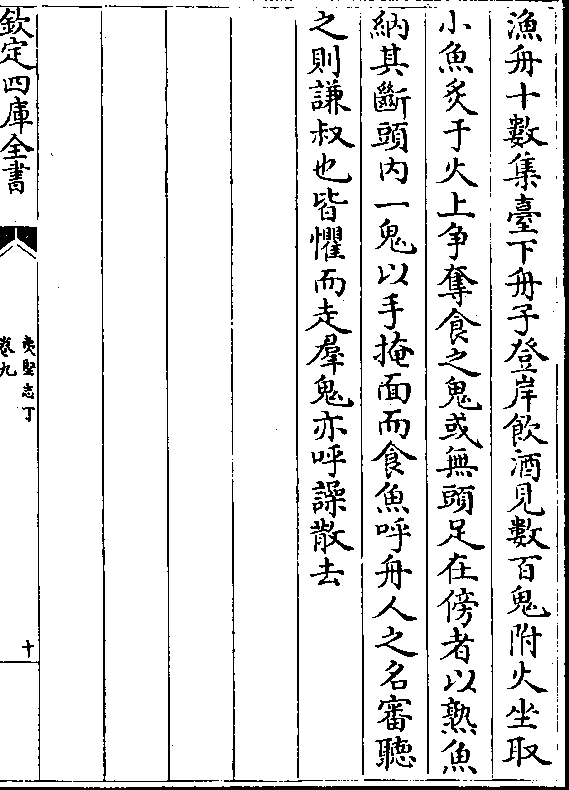 漁舟十數集臺下舟子登岸飲酒見數百鬼附火坐取
小魚炙于火上争奪食之鬼或無頭足在傍者以熟魚
納其斷頭内一鬼以手掩面而食魚呼舟人之名審聽
之則謙叔也皆懼而走羣鬼亦呼譟散去
欽定四庫全書
夷堅志丁
卷九
十